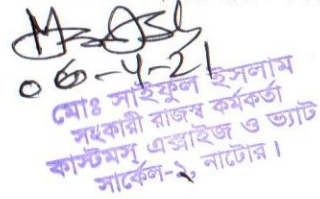 06-4-21
মোঃ সাইফুল ইসলাম
সহকারী রাজস্ব কর্মকর্তা
কাস্টমস্ এক্সাইজ ও ভ্যাট
সার্কেল-২, নাটোর।